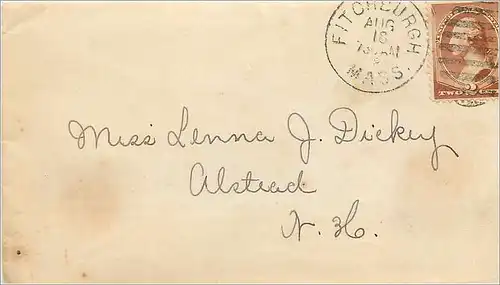 FITCHBURGH
AUG
16
MASS.
TWO CENTS
Miss Lenna J. Dickey
Alstead
N. H.